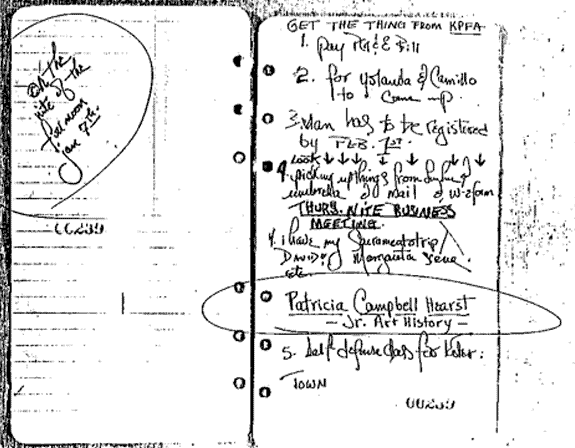 On the
nite of the
full moon
Jan 7th.
00239
GET THE THING FROM KPFA
1. pay PG&E Bill
2. for Yolanda & Camillo
to come up.
3. Man has to be registered
by FEB. 1st.
Look ↓ ↓ ↓ ↓ ↓ ↓
4. picking up things from
umbrella mail & W-2 form
THURS. NITE BUSINESS
MEETING.
4. i have my Sacramento trip
DAVID: Margarita
etc.
Patricia Campbell Hearst
— Jr. Art History —
5. Self defense class for
TOWN
00239